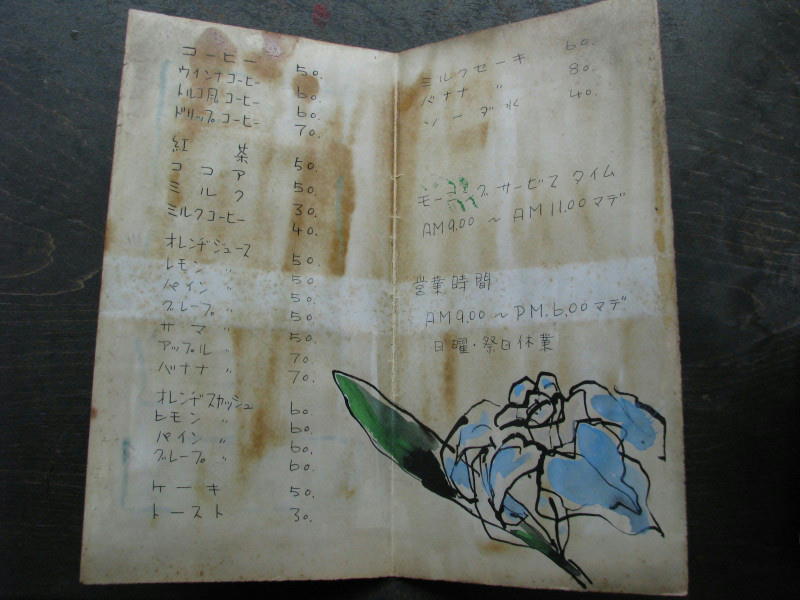 コーヒー 50.
ウインナコーヒー 60.
トルコ風コーヒー 60.
ドリップコーヒー 70.
紅茶 50.
ココア 50.
ミルク 30.
ミルクコーヒー 40.
オレンヂジュース 50.
レモン 〃 50.
パイン 〃 50.
グレープ 〃 50.
サマ 〃 50.
アップル 〃 70.
バナナ 〃 70.
オレンヂスカッシュ 60.
レモン 〃 60.
パイン 〃 60.
グレープ 〃 60.
ケーキ 50.
トースト 30.
ミルクセーキ 60.
バナナ 〃 80.
ソーダ水 40.
モーニングサービスタイム
AM9.00 ~ AM11.00マデ
営業時間
AM9.00 ~ PM.6.00マデ
日曜・祭日休業